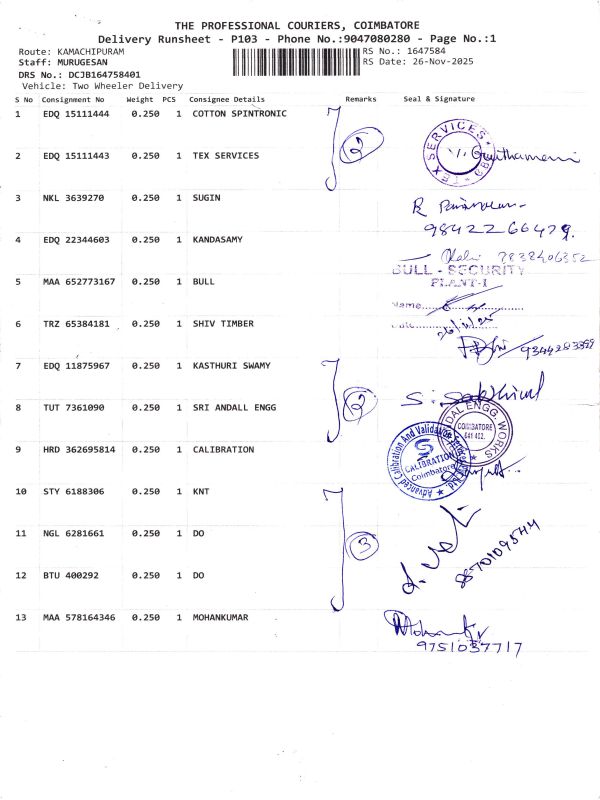 THE PROFESSIONAL COURIERS, COIMBATORE
Delivery Runsheet - P103 - Phone No.:9047080280 - Page No.:1
Route: KAMACHIPURAM RS No.: 1647584
Staff: MURUGESAN RS Date: 26-Nov-2025
DRS No.: DCJB164758401
Vehicle: Two Wheeler Delivery
S No Consignment No Weight PCS Consignee Details Remarks Seal & Signature
1 EDQ 15111444 0.250 1 COTTON SPINTRONIC
2
TEX SERVICES
2 EDQ 15111443 0.250 1 TEX SERVICES
3 NKL 3639270 0.250 1 SUGIN
98422 66479
4 EDQ 22344603 0.250 1 KANDASAMY
7838406352
BULL - SECURITY
PLANT-I
5 MAA 652773167 0.250 1 BULL
Name
Date
26/11/25
6 TRZ 65384181 0.250 1 SHIV TIMBER
7 EDQ 11875967 0.250 1 KASTHURI SWAMY
2
8 TUT 7361090 0.250 1 SRI ANDALL ENGG
DAL ENGG. WORKS
COIMBATORE
641 402.
9 HRD 362695814 0.250 1 CALIBRATION
Advanced Calibration And Validation
CALIBRATION
Coimbatore
10 STY 6188306 0.250 1 KNT
11 NGL 6281661 0.250 1 DO
3
12 BTU 400292 0.250 1 DO
13 MAA 578164346 0.250 1 MOHANKUMAR
9751037717